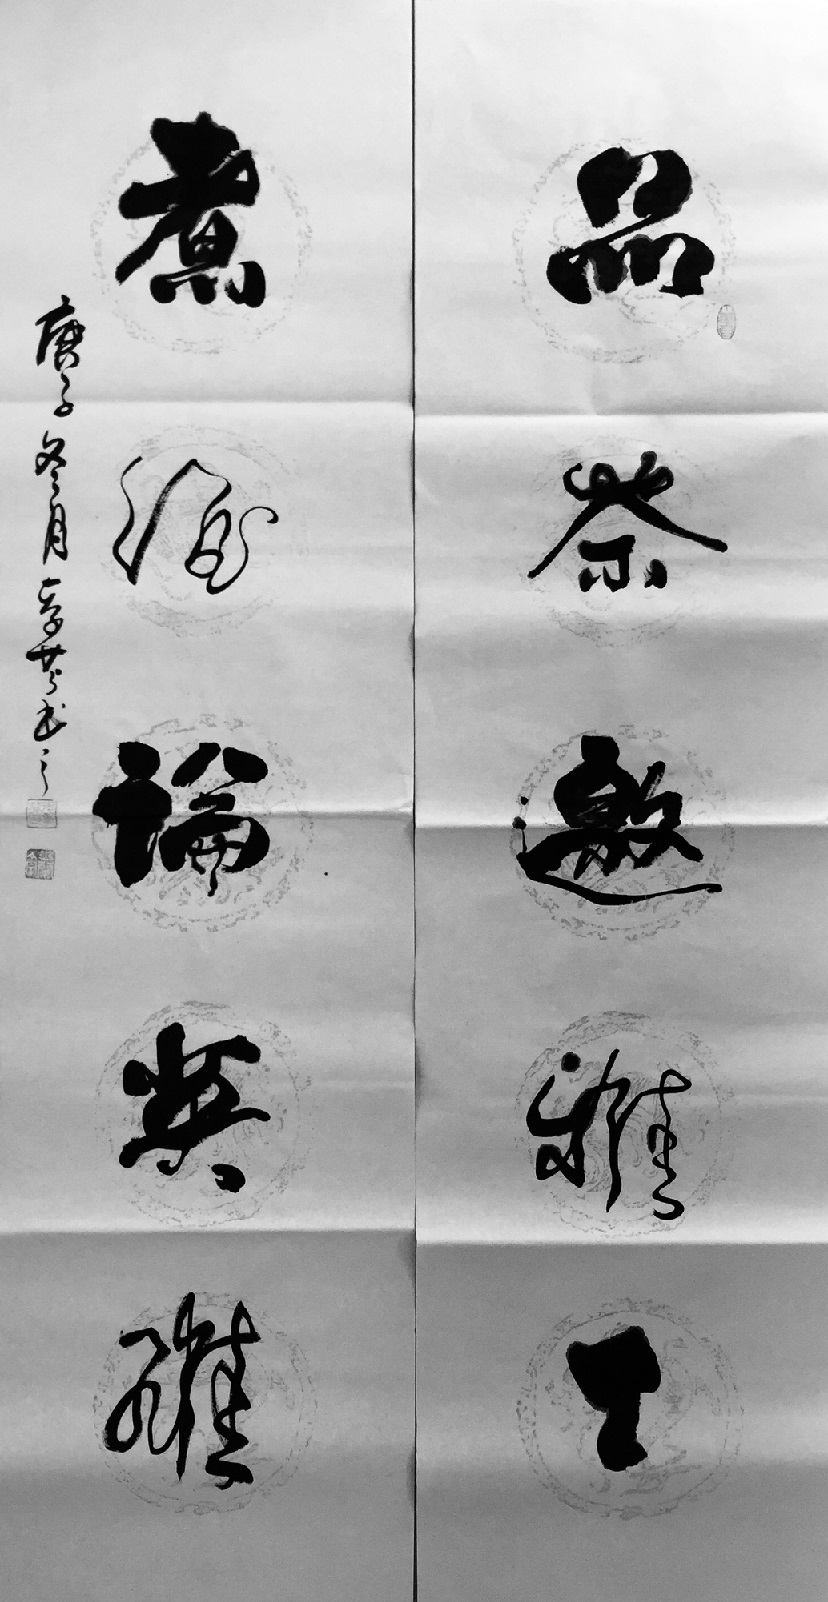 品茶邀雅士
煮酒論英雄
庚子冬月
书